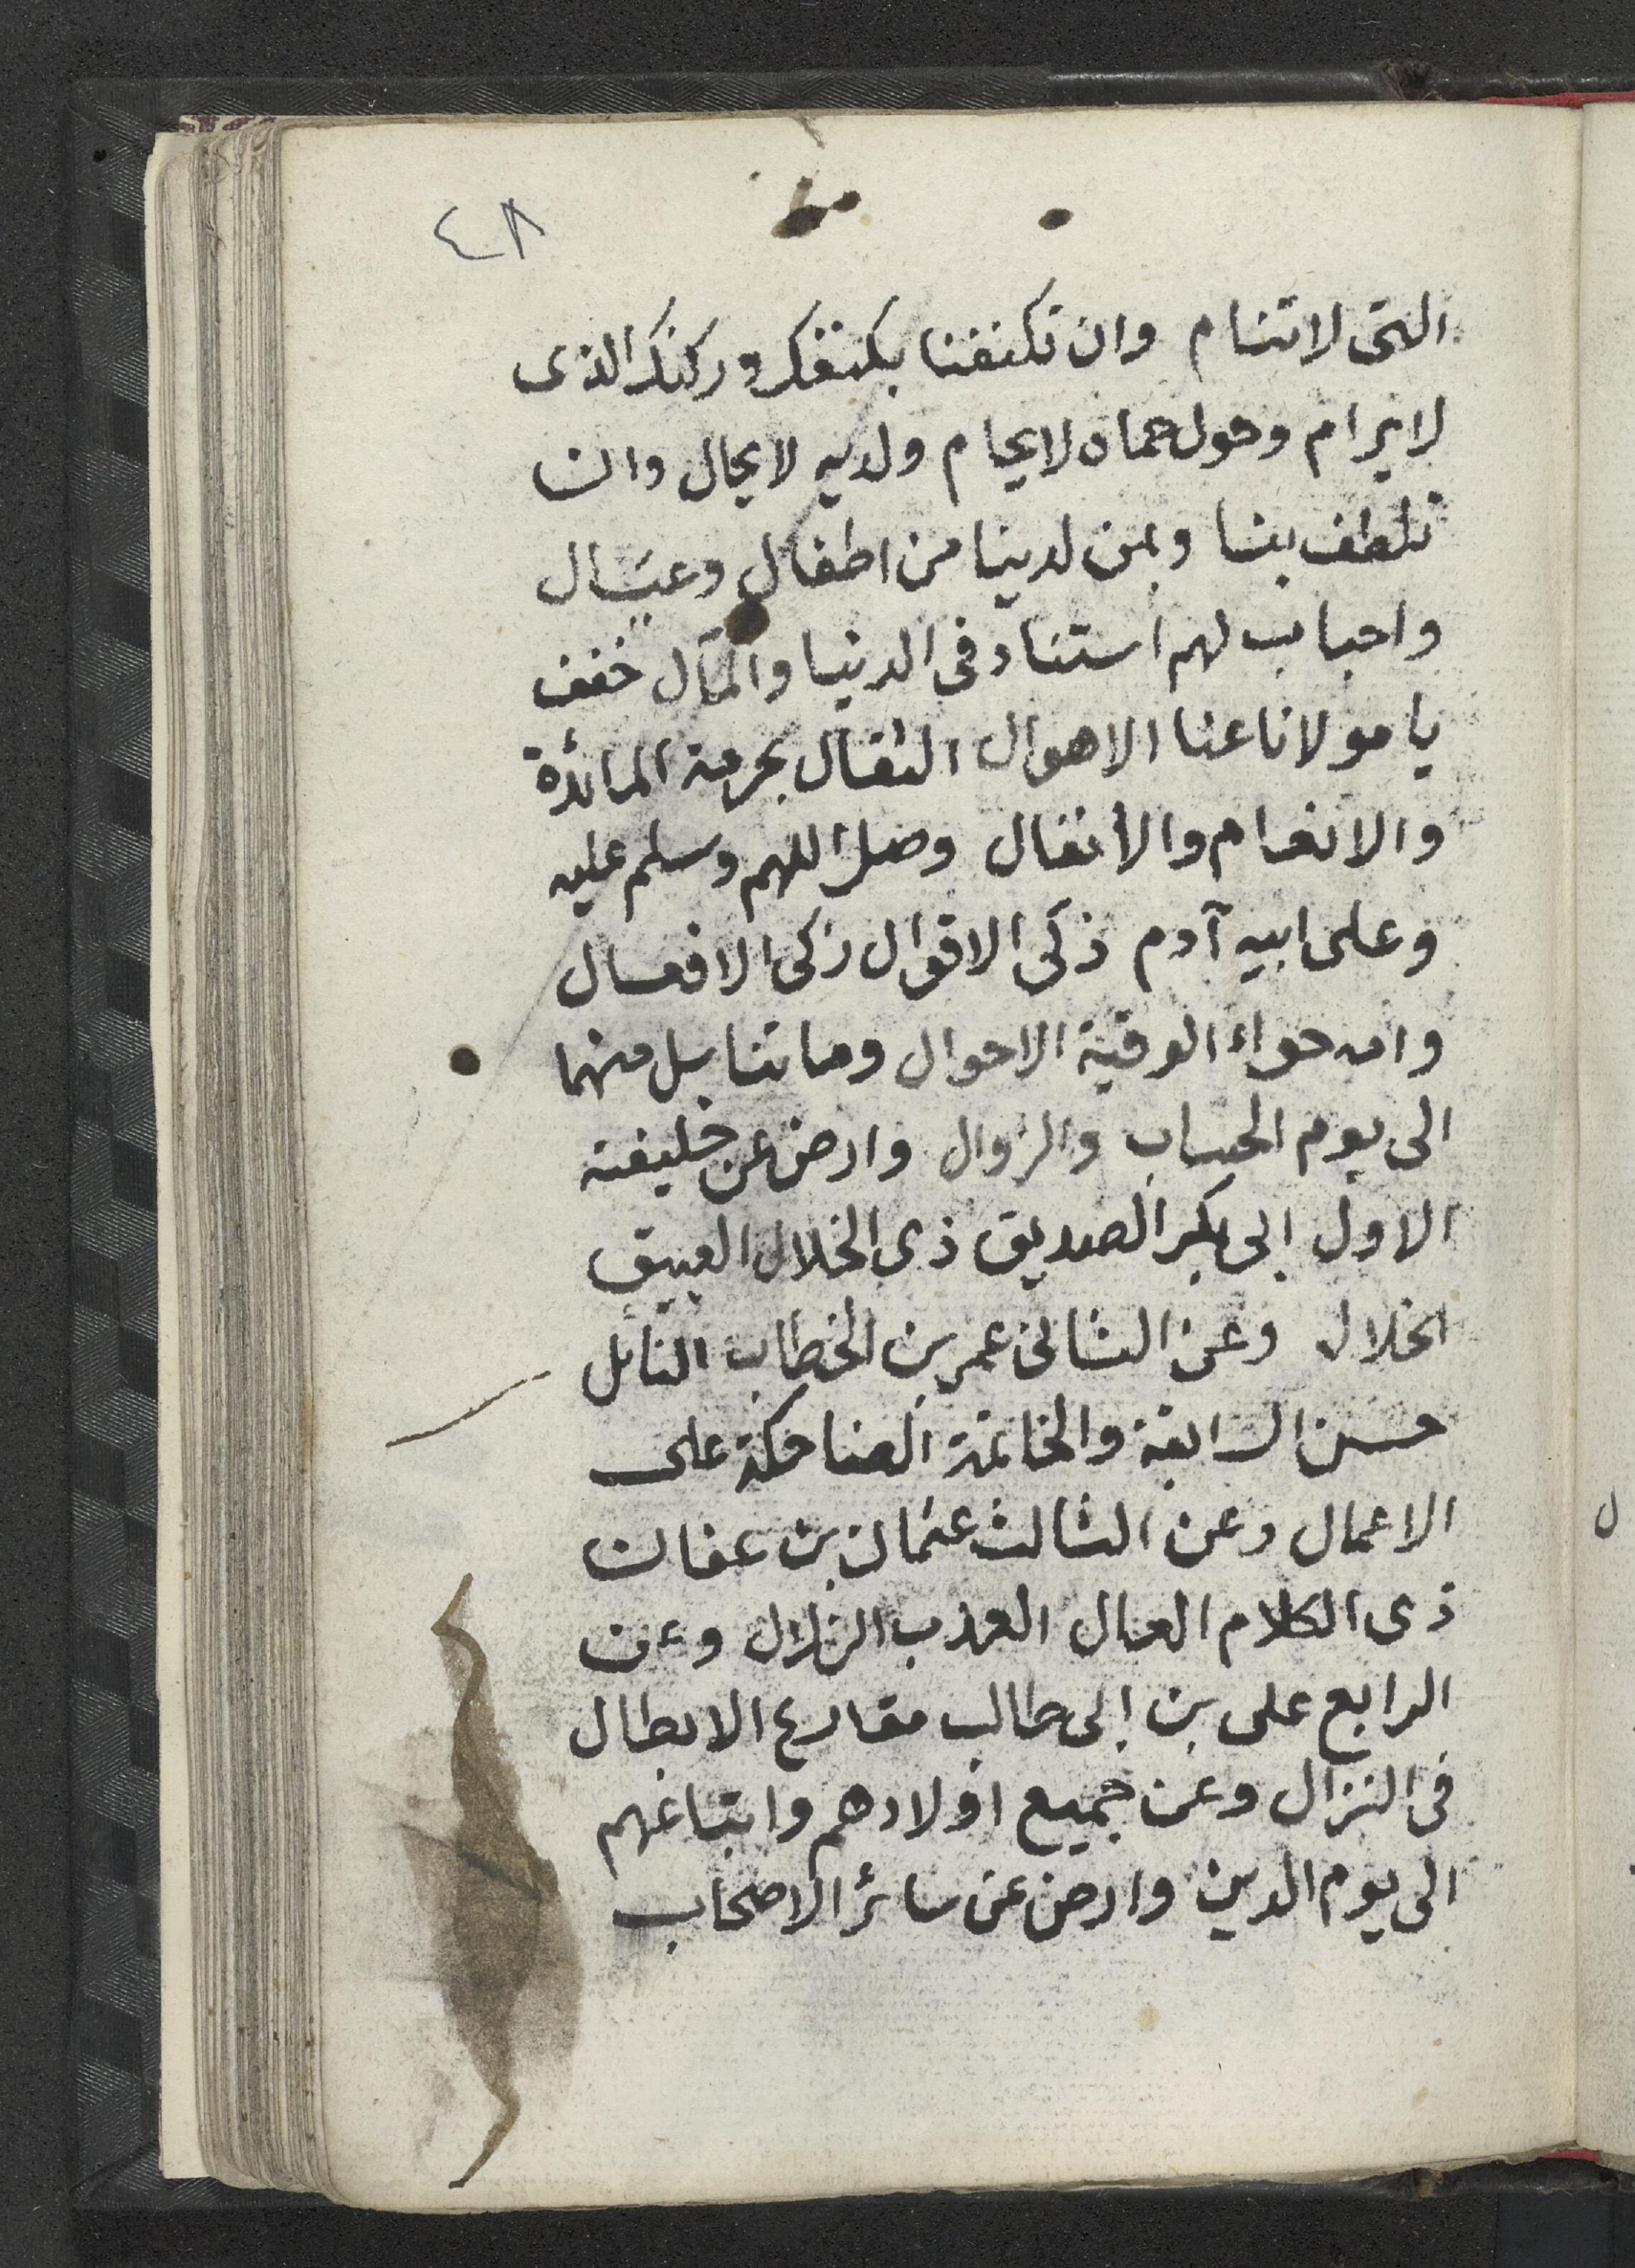 ٤٨
التى لاتنام وان تكنفنا بكنفك وركنك الذى
لايرام وحول حماه لايحام ولديه لايحال وان
تلطف بنا وبمن لدينا من اطفال وعيال
واحباب لهم استناد فى الدنيا والمآل خفف
يا مولانا عنا الاهوال الثقال بحرمة المائدة
والانعام والأنفال وصل اللهم وسلم عليه
وعلى ابيه آدم ذكى الاقوال زكى الافعال
وامه حواء الوقية الاحوال وما تناسل منهما
الى يوم الحساب والزوال وارض عن خليفته
الاول ابى بكر الصديق ذى الخلال العبيق
الخلال وعن الثانى عمر بن الخطاب النائل
حسن السابقة والخاتمة الضاحكة على
الاعمال وعن الثالث عثمان بن عفان
ذى الكلام العال العذب الزلال وعن
الرابع على بن ابى طالب مقارع الابطال
فى النزال وعن جميع اولادهم واتباعهم
الى يوم الدين وارض عن سائر الاصحاب